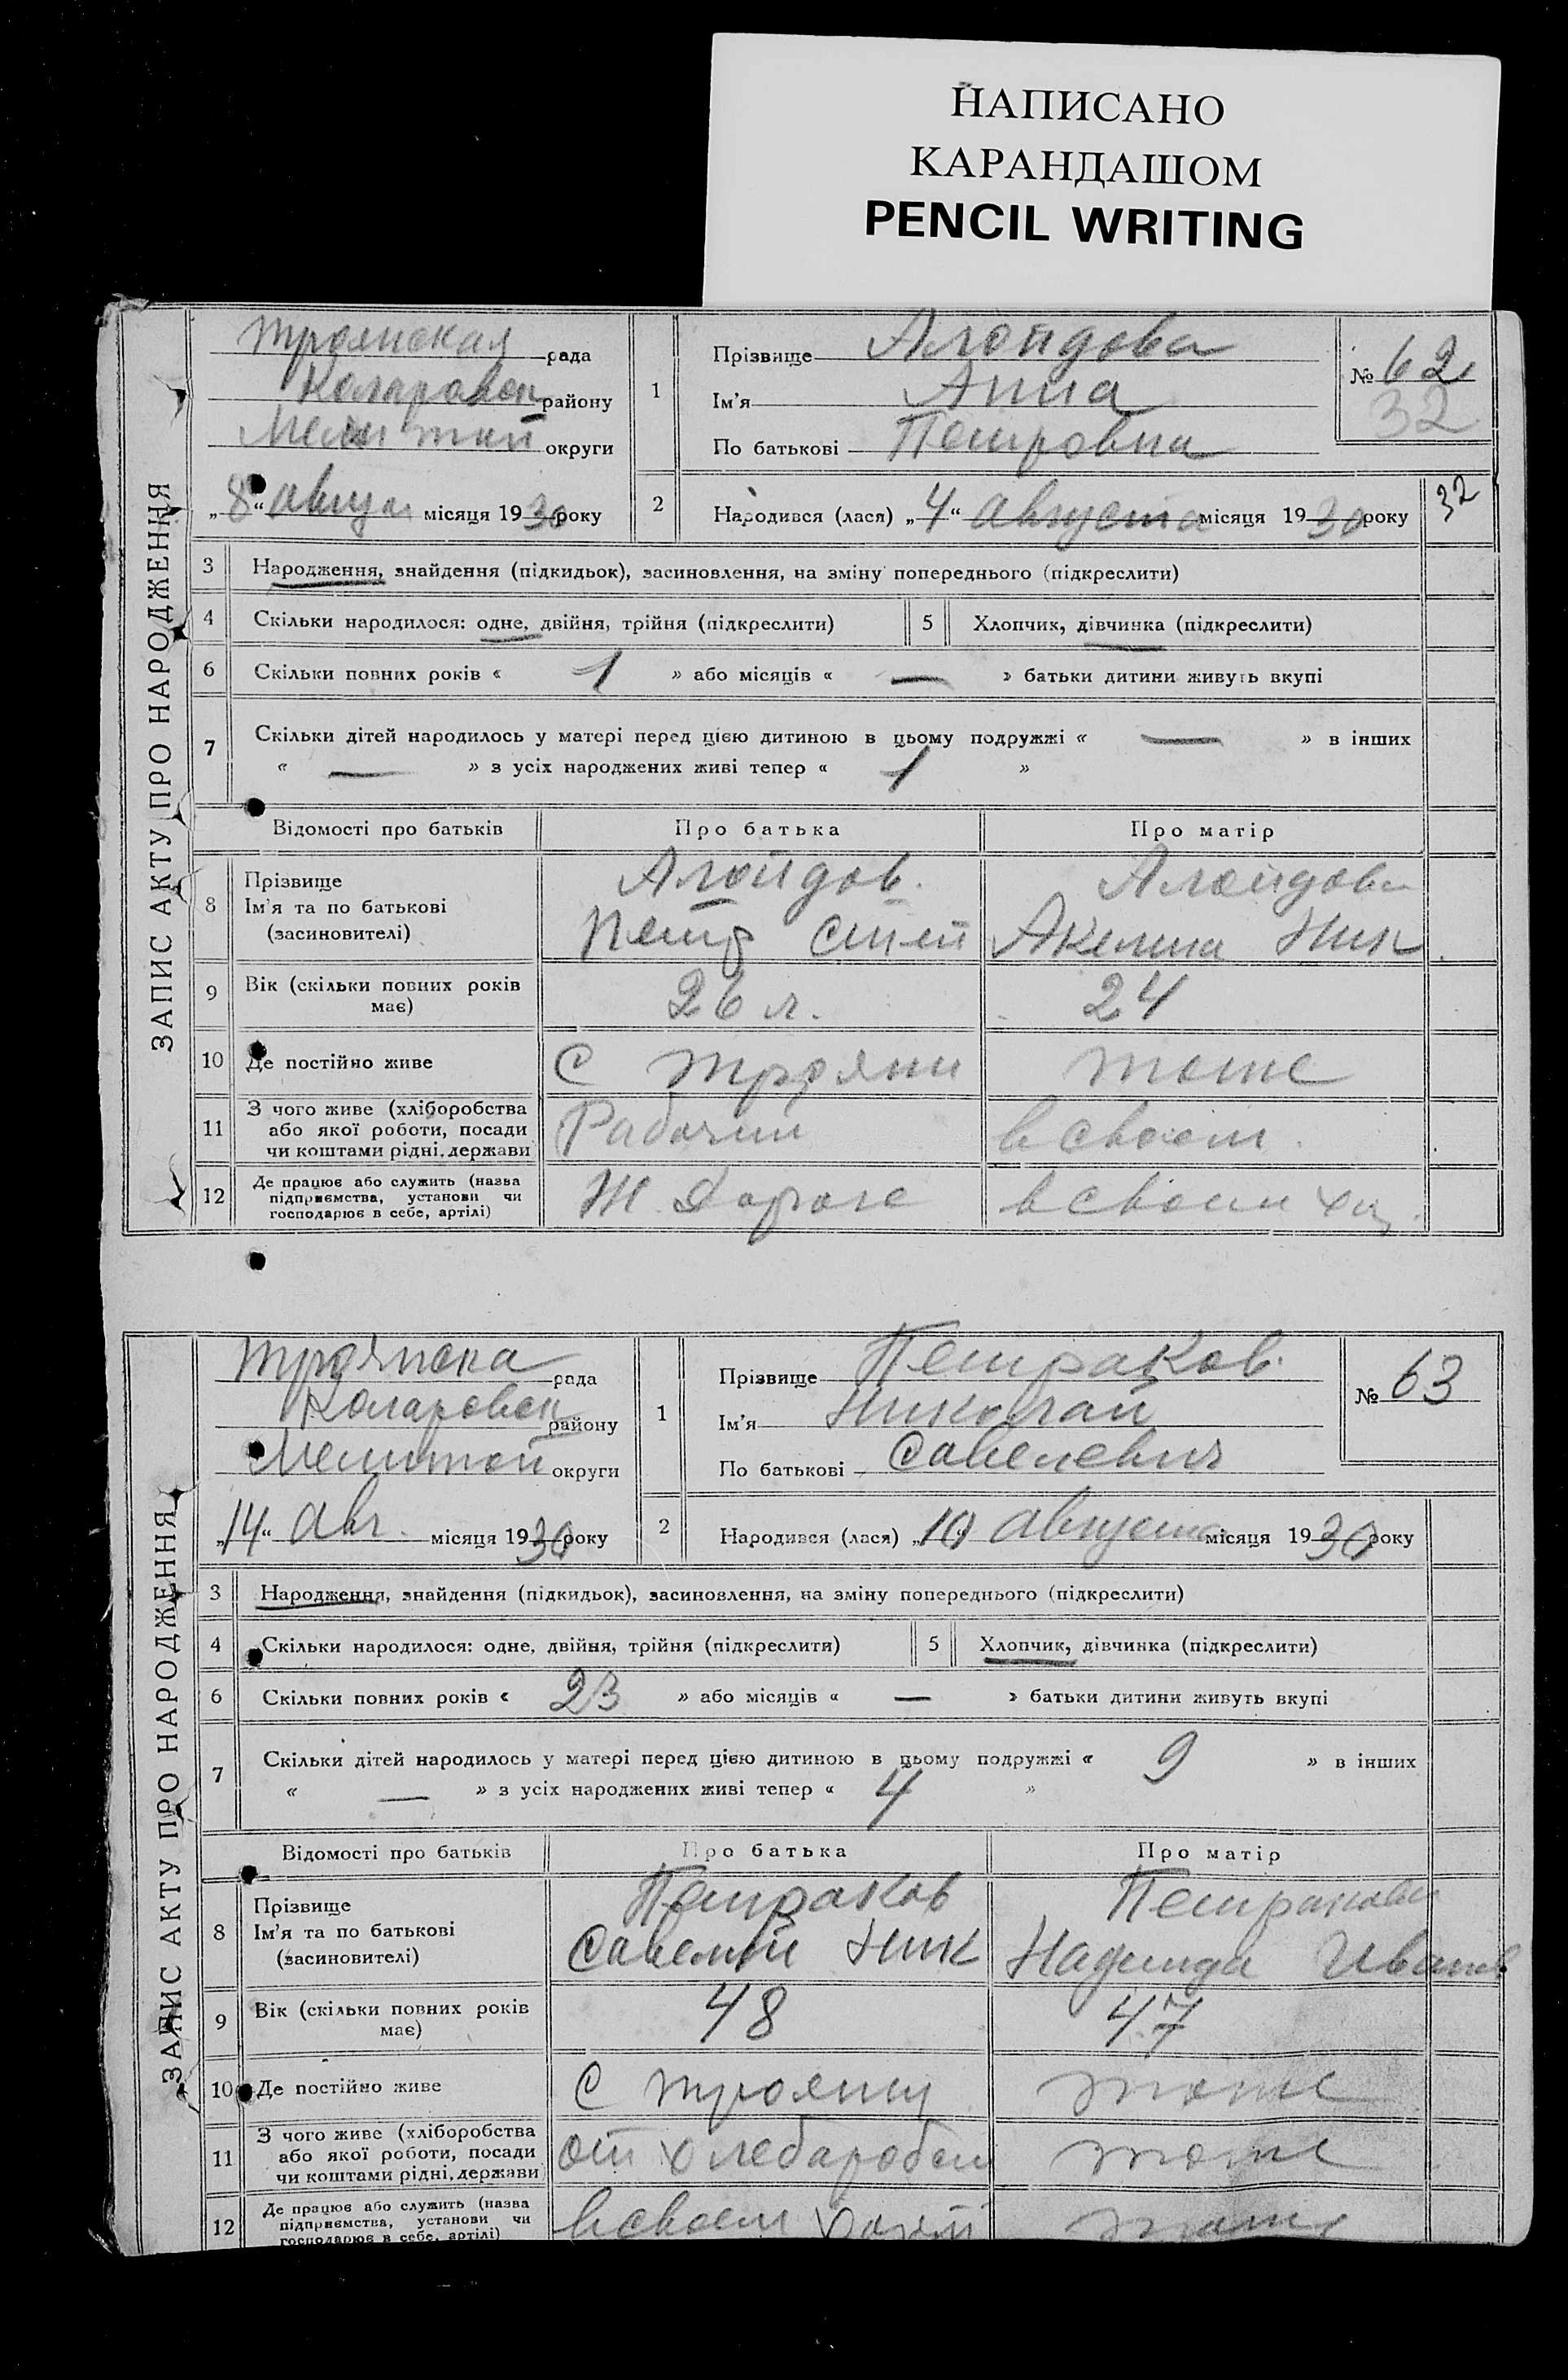 НАПИСАНО
КАРАНДАШОМ
PENCIL WRITING
ЗАПИС АКТУ ПРО НАРОДЖЕННЯ
Троянская рада
Коларовск району
Мелитоп округи
„8“ август місяця 1930 року
1 Прізвище
Ім’я Анна
По батькові Петровна
№ 62
32
2 Народився (лася) „4“ августа місяця 1930 року
32
3 Народження, знайдення (підкидьок), засиновлення, на зміну попереднього (підкреслити)
4 Скільки народилося: одне, двійня, трійня (підкреслити) 5 Хлопчик, дівчинка (підкреслити)
6 Скільки повних років « 1 » або місяців « — » батьки дитини живуть вкупі
7 Скільки дітей народилось у матері перед цією дитиною в цьому подружжі « — » в інших
« — » з усіх народжених живі тепер « 1 »
Відомості про батьків Про батька Про матір
8 Прізвище
Ім’я та по батькові Петр Степ Акелина Ник
(засиновителі)
9 Вік (скільки повних років має) 26 л. 24
10 Де постійно живе С Трояни тоже
11 З чого живе (хліборобства або якої роботи, посади чи коштами рідні, держави Рабочий в своем
12 Де працює або служить (назва підприємства, установи чи господарює в себе, артілі) Ж. Дороге в своем хоз.
ЗАПИС АКТУ ПРО НАРОДЖЕННЯ
Троянска рада
Коларовск району
Мелитоп округи
„14“ Авг. місяця 1930 року
1 Прізвище Петраков.
Ім’я Николай
По батькові Савелевич
№ 63
2 Народився (лася) „10“ августа місяця 1930 року
3 Народження, знайдення (підкидьок), засиновлення, на зміну попереднього (підкреслити)
4 Скільки народилося: одне, двійня, трійня (підкреслити) 5 Хлопчик, дівчинка (підкреслити)
6 Скільки повних років « 23 » або місяців « — » батьки дитини живуть вкупі
7 Скільки дітей народилось у матері перед цією дитиною в цьому подружжі « 9 » в інших
« — » з усіх народжених живі тепер « 4 »
Відомості про батьків Про батька Про матір
8 Прізвище Петраков Петракова
Ім’я та по батькові Савелий Ник Надежда Иванов
(засиновителі)
9 Вік (скільки повних років має) 48 47
10 Де постійно живе С Трояны тоже
11 З чого живе (хліборобства або якої роботи, посади чи коштами рідні, держави от хлебаробст тоже
12 Де працює або служить (назва підприємства, установи чи господарює в себе, артілі) в своем хозяй тоже